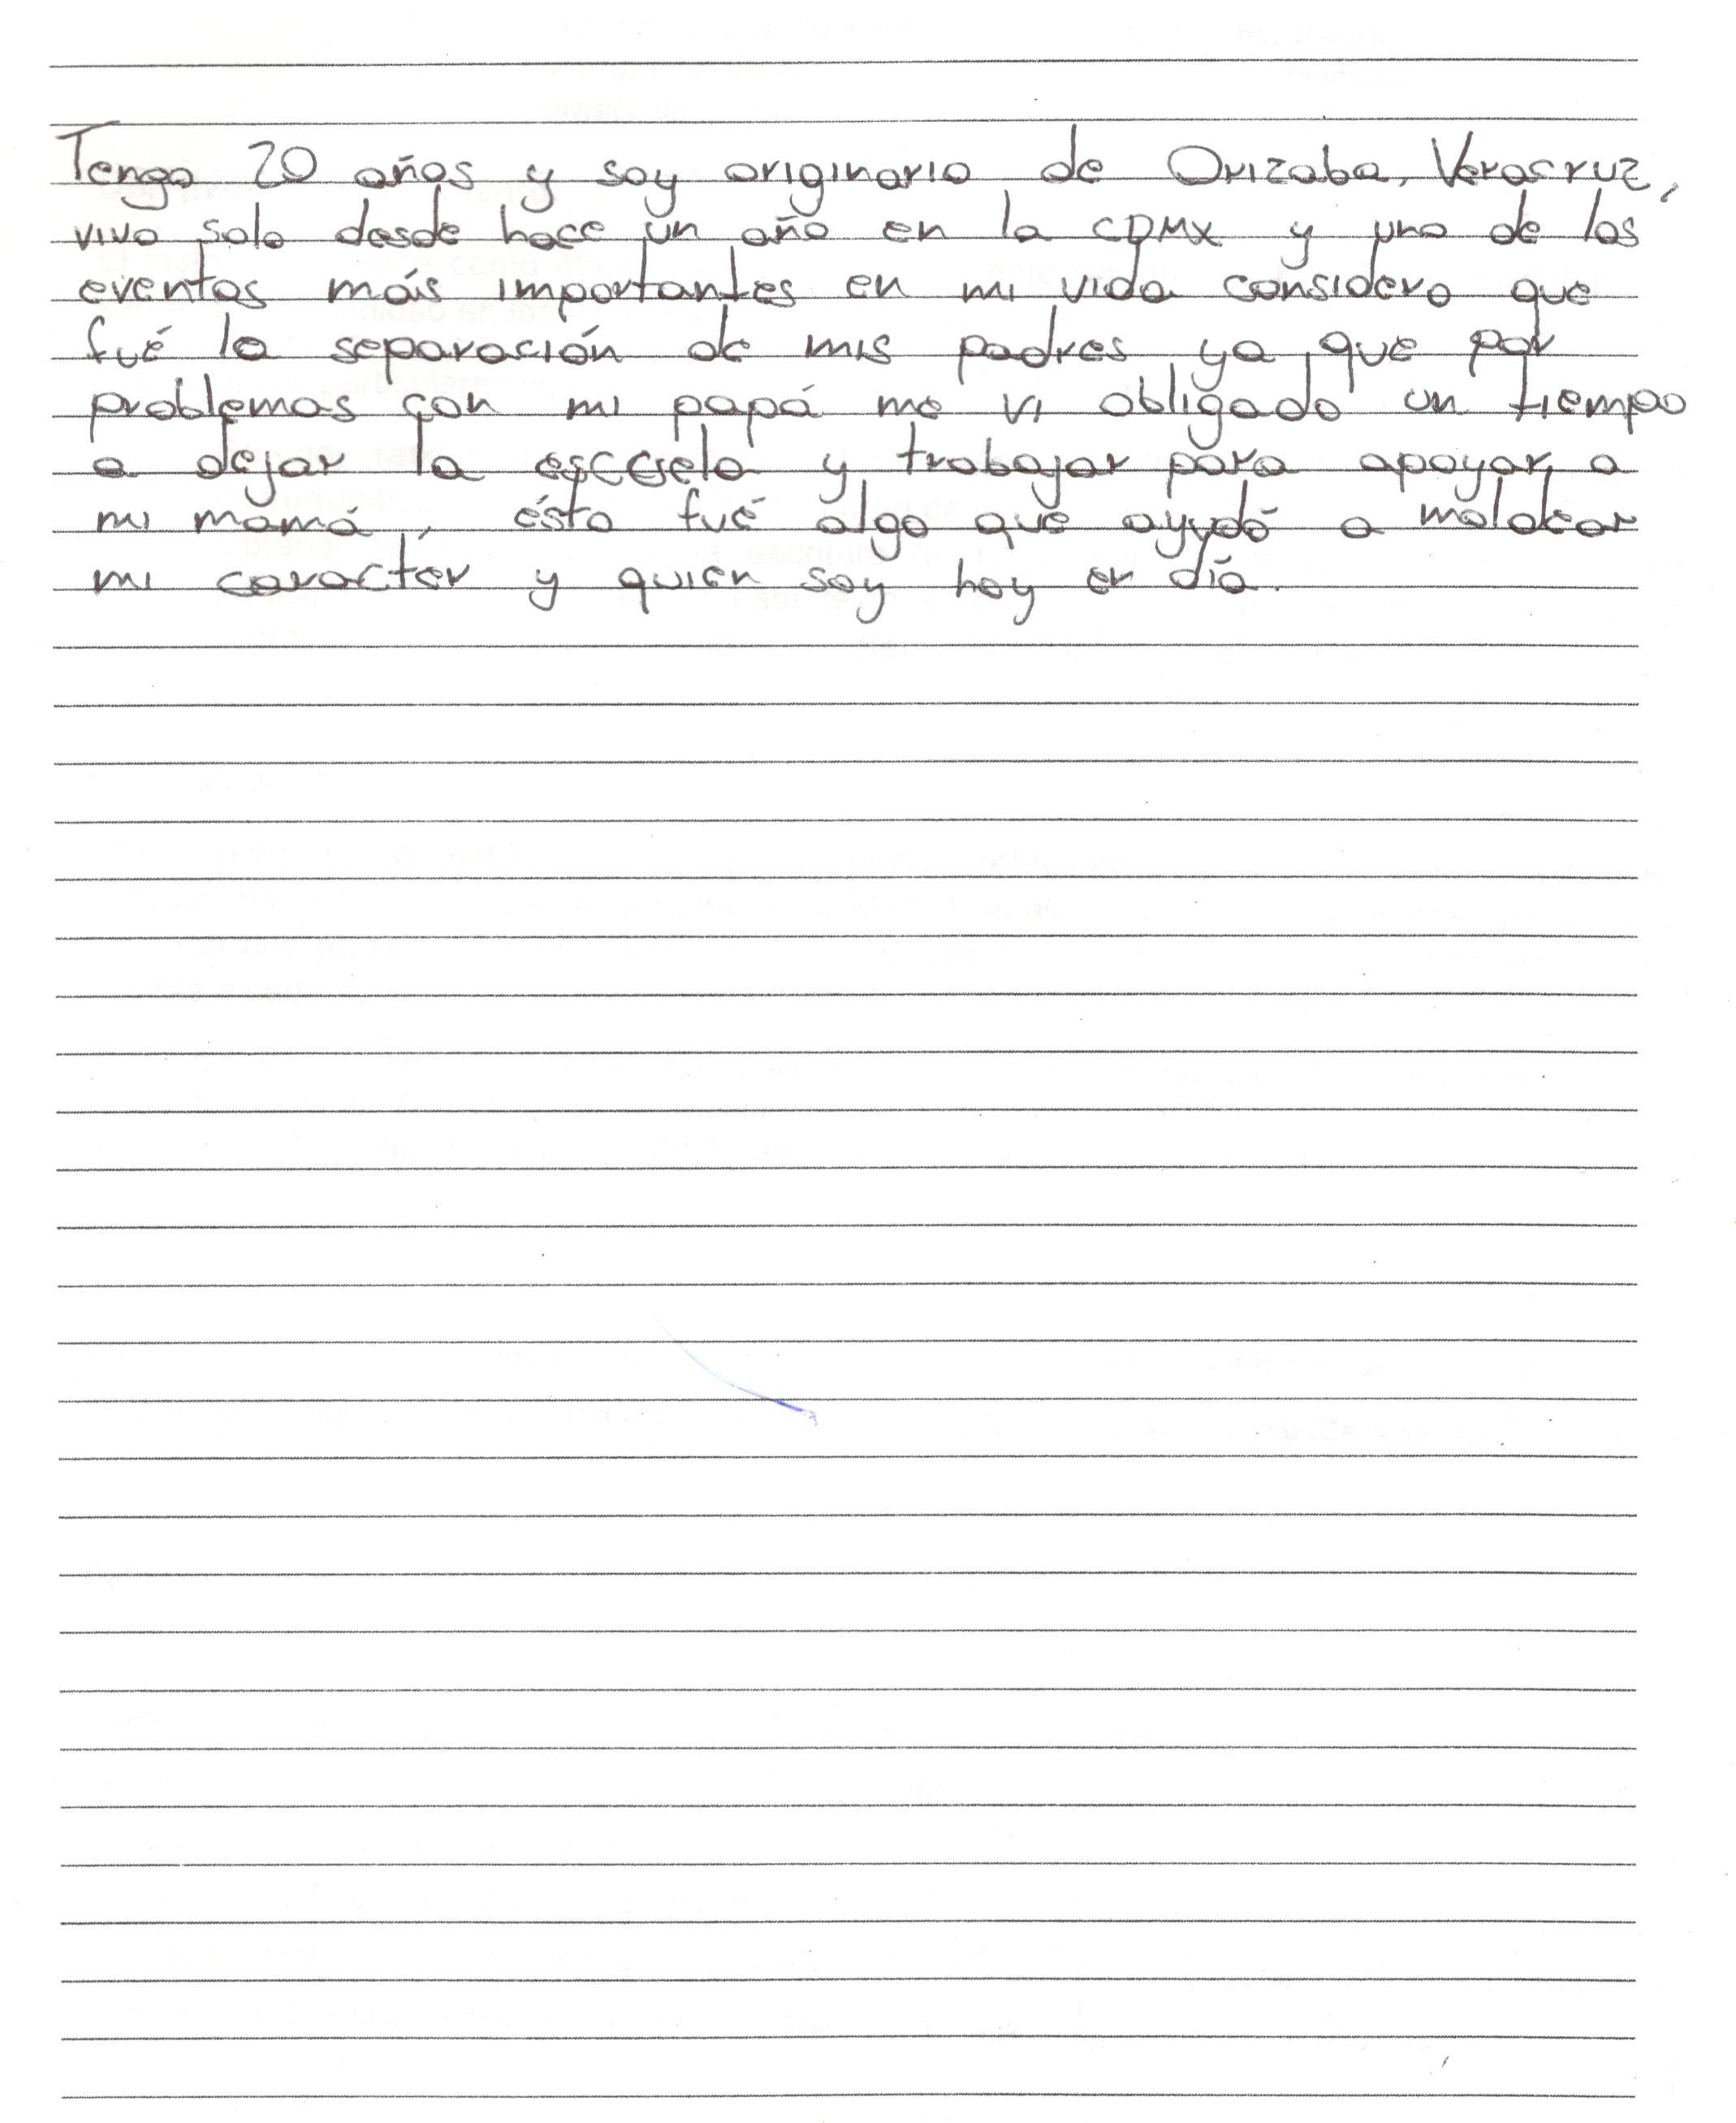 Tengo 20 años y soy originario de Orizaba, Veracruz,
vivo solo desde hace un año en la CDMX y uno de los
eventos más importantes en mi vida considero que
fué la separación de mis padres ya que por
problemas con mi papá me vi obligado un tiempo
a dejar la escuela y trabajar para apoyar a
mi mamá, ésto fué algo que ayudó a moldear
mi caracter y quien soy hoy en día.